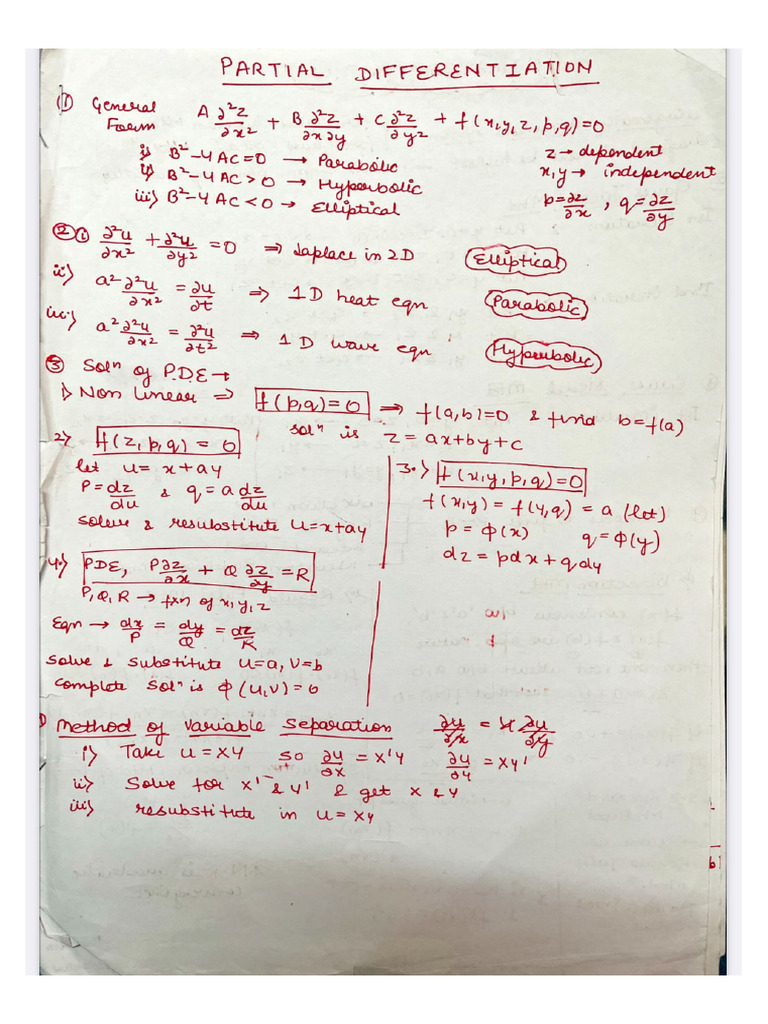 PARTIAL DIFFERENTIATION
① General Form A ∂²z/∂x² + B ∂²z/∂x∂y + C ∂²z/∂y² + f(x,y,z,p,q)=0
i) B²-4AC=0 → Parabolic
ii) B²-4AC>0 → Hyperbolic
iii) B²-4AC<0 → Elliptical
z → dependent
x,y → independent
p=∂z/∂x , q=∂z/∂y
② i) ∂²u/∂x² + ∂²u/∂y² = 0 ⇒ Laplace in 2D Elliptical
ii) a² ∂²u/∂x² = ∂u/∂t ⇒ 1D heat eqn Parabolic
iii) a² ∂²u/∂x² = ∂²u/∂t² ⇒ 1D wave eqn Hyperbolic
③ Solⁿ of P.D.E →
1) Non Linear ⇒ f(p,q)=0 ⇒ f(a,b)=0 & find b=f(a)
solⁿ is z=ax+by+c
2) f(z,p,q) = 0
let u = x+ay
P=dz/du & q = a dz/du
solve & resubstitute u=x+ay
3.) f(x,y,p,q)=0
f(x,y) = f(y,q) = a (let)
p = φ(x) q = φ(y)
dz = pdx + q dy
4) PDE, P∂z/∂x + Q ∂z/∂y = R
P,Q,R → fxn of x,y,z
Eqn → dx/P = dy/Q = dz/R
solve & substitute u=a, v=b
complete solⁿ is φ(u,v) = 0
Method of variable separation
i) Take u = xy so ∂u/∂x = x'y ∂u/∂y = xy'
ii) Solve for x' & y' & get x & y
iii) resubstitute in u = xy